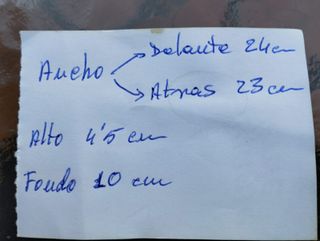 Delante 24cm
Ancho
Atras 23cm
Alto 4'5 cm
Fondo 10 cm